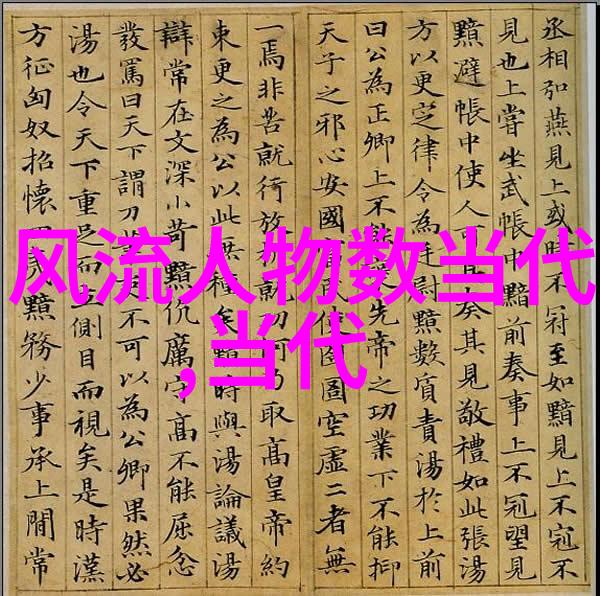 风流人物数当代
,当代
丞相弘燕見上或時不冠至如黯見上不冠不
見也上嘗坐武帳中黯前奏事上不冠望見
黯避帳中使人可其奏其見敬禮如此張湯
方以更定律令為廷尉黯數質責湯於上前
曰公為正卿上不能先帝之功業下不能抑
天子之邪心安國民使囹圄空虛二者無
一焉非苦就行放就功何乃取髙皇帝約
束更之為公以此無種矣黯時與湯論議湯
辯常在文深小苛黯伉厲守髙不能屈忿
發罵曰天下謂刀不可以為公卿果然必
湯也令天下重足而立側目而視矣是時漢
方征匈奴招懷黯務少事承上間常